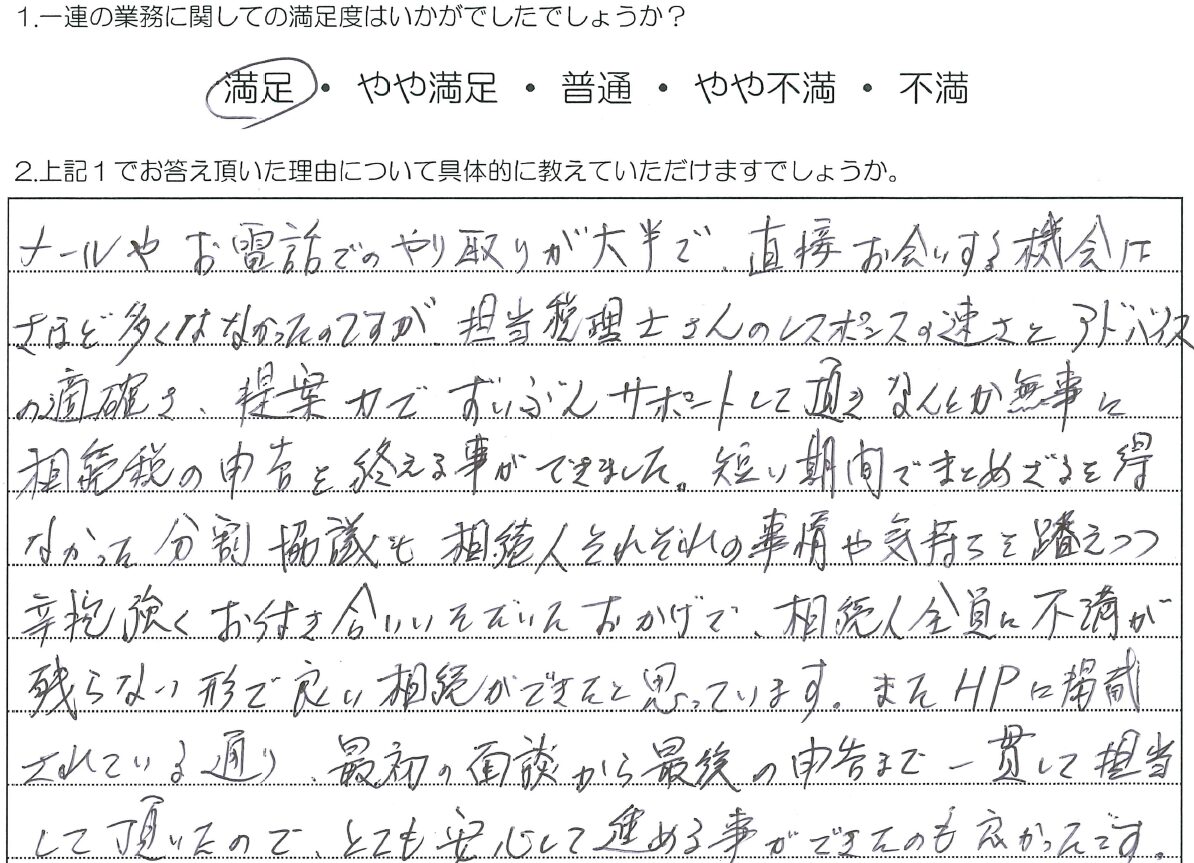 1.一連の業務に関しての満足度はいかがでしたでしょうか？
満足・やや満足・普通・やや不満・不満
2.上記1でお答え頂いた理由について具体的に教えていただけますでしょうか。
メールやお電話でのやり取りが大半で、直接お会いする機会は
さほど多くはなかったのですが、担当税理士さんのレスポンスの速さとアドバイス
の適確さ、提案力でずいぶんサポートして頂きなんとか無事に
相続税の申告を終える事ができました。短い期間でまとめざるを得
なかった分割協議も相続人それぞれの事情や気持ちを踏えつつ
辛抱強くお付き合いいただいたおかげで、相続人全員に不満が
残らない形で良い相続ができたと思っています。またHPに掲載
されている通り、最初の面談から最後の申告まで一貫して担当
して頂いたので、とても安心して進める事ができたのも良かったです。